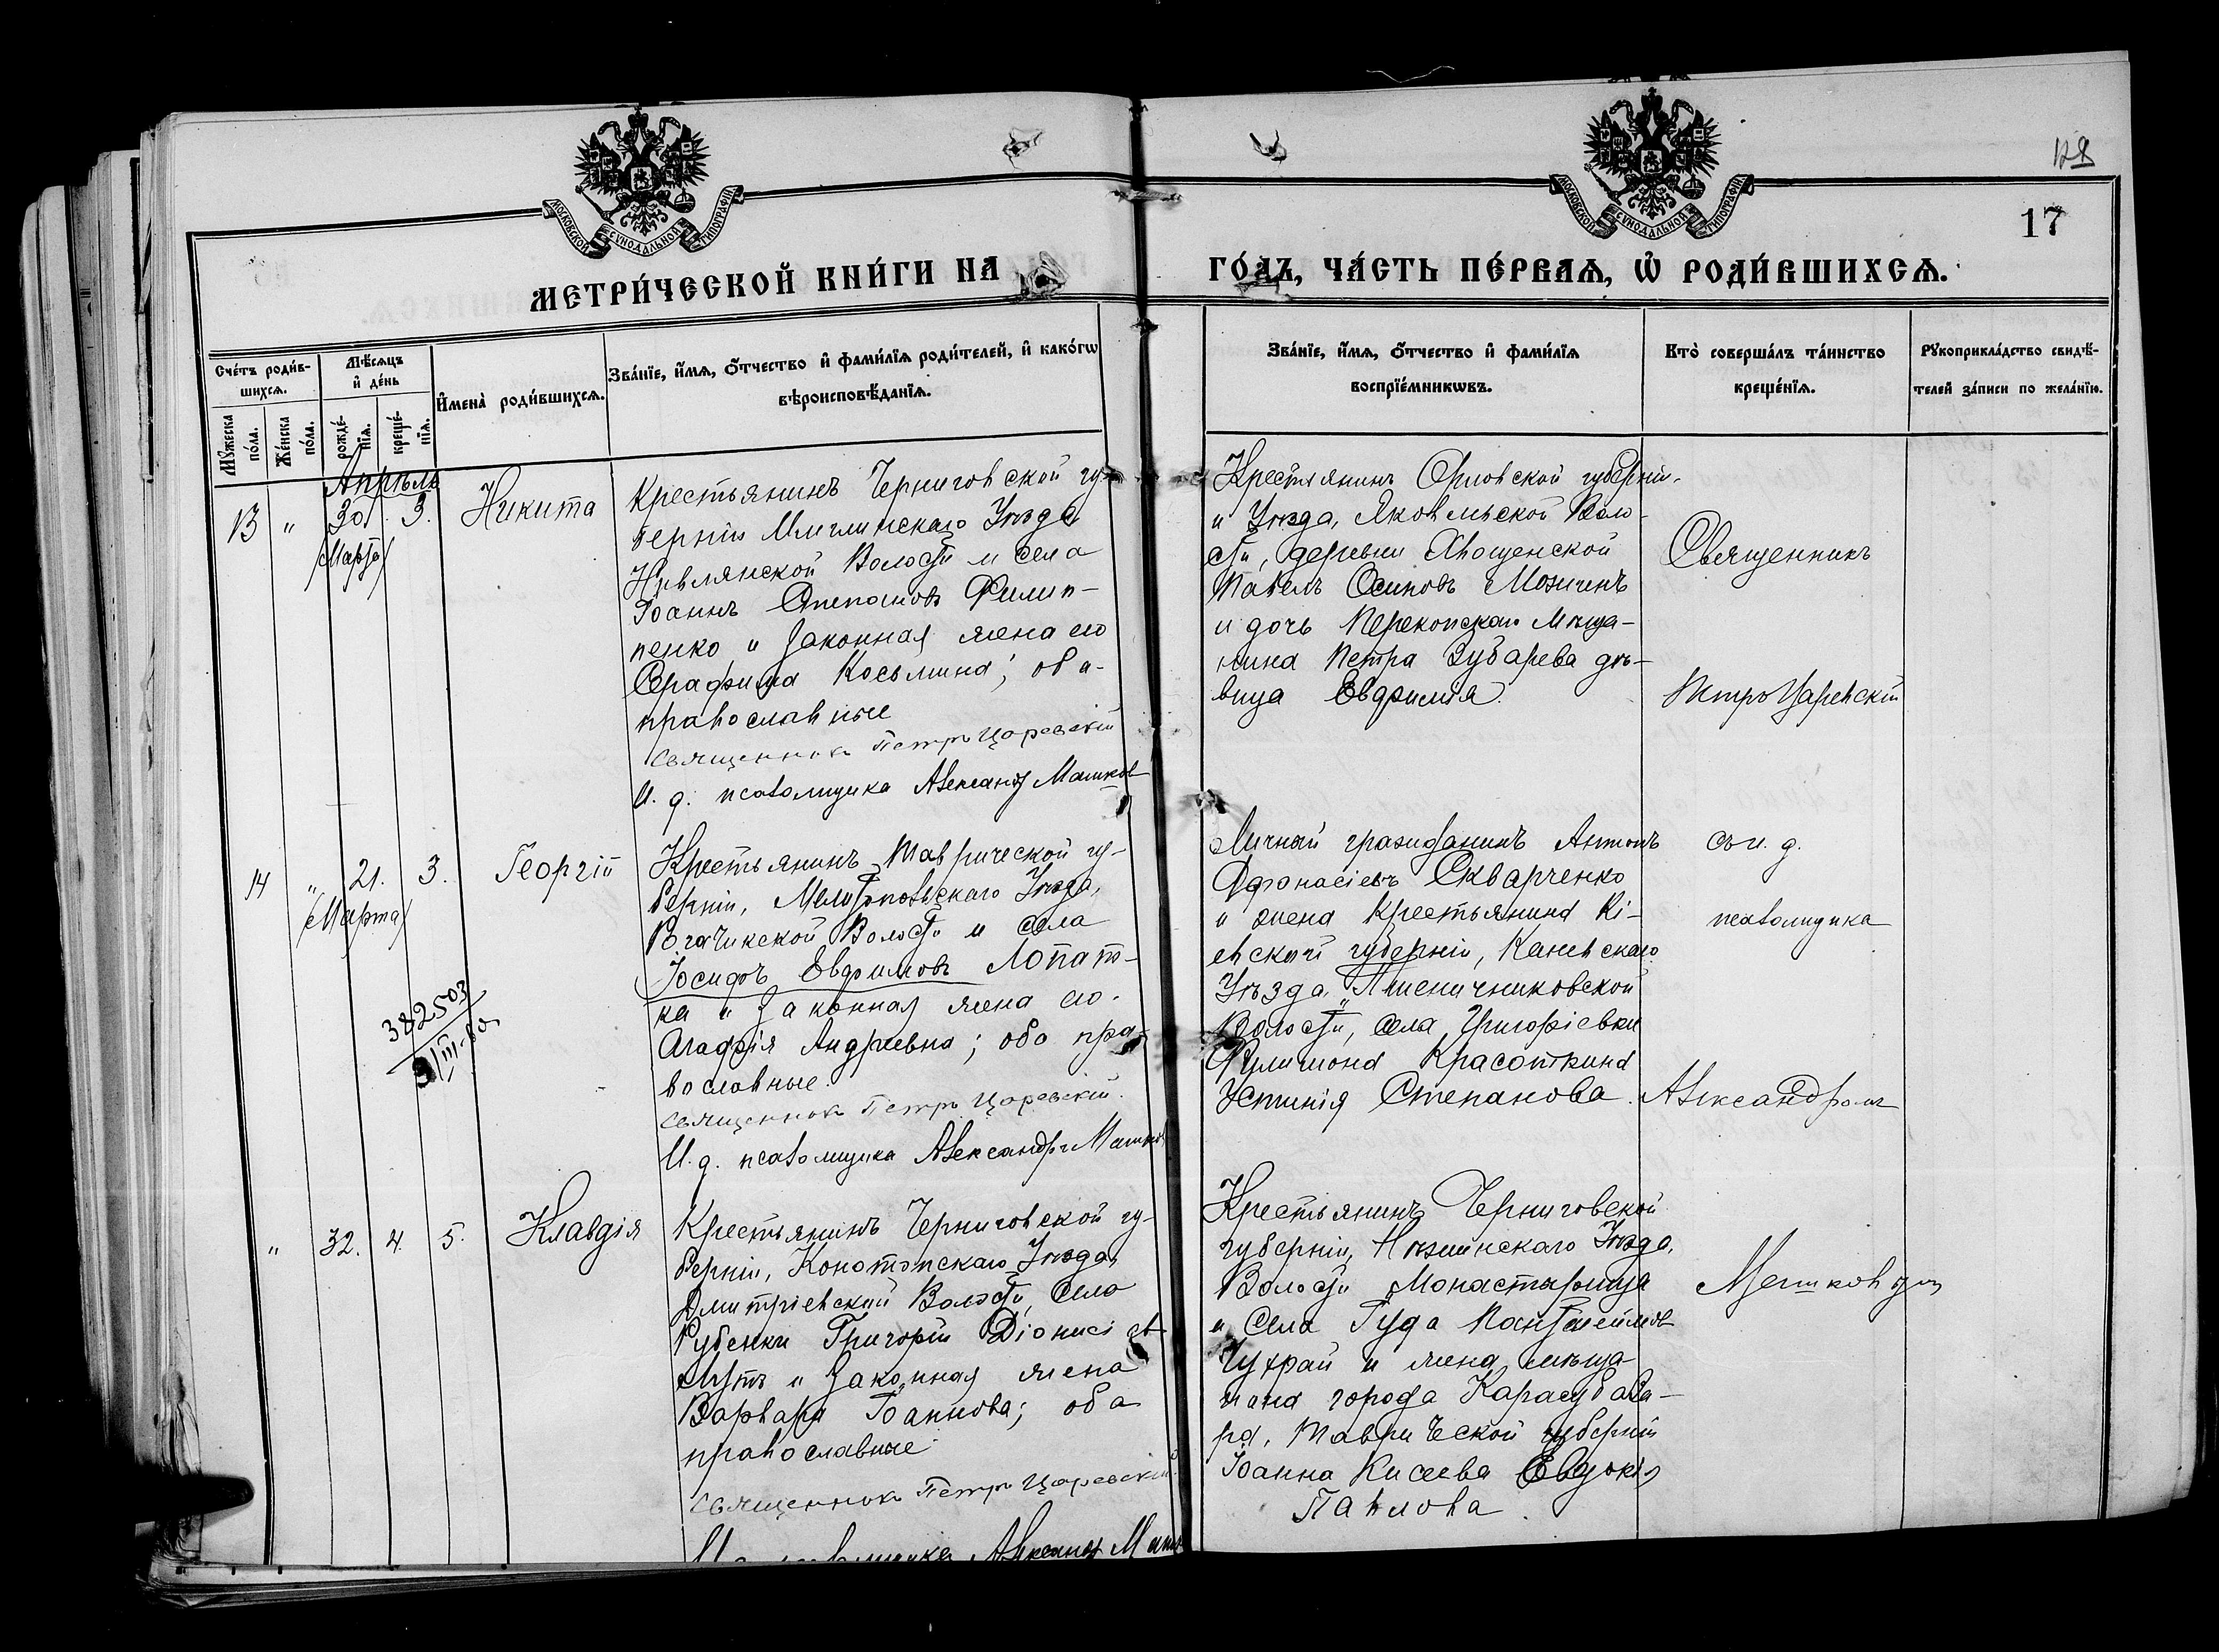 128
17
МОСКОВСКОЙ СУНОДАЛЬНОЙ ТИПОГРАФІИ
МОСКОВСКОЙ СУНОДАЛЬНОЙ ТИПОГРАФІИ
МЕТРИ́ЧЕСКОЙ КНИ́ГИ НА
ГО́ДЪ, ЧА́СТЬ ПЕ́РВАѦ, Ѡ҆ РОДИ́ВШИХСѦ.
Сче́тъ роди́в-
шихсѧ.
Мꙋжеска по́ла.
Же́нска по́ла.
Мѣ́сѧцъ
и҆ де́нь
рожде́-
нїѧ.
креще́-
нїѧ.
И҆мена̀ роди́вшихсѧ.
Зва́нїе, и҆́мѧ, ѻ҆́тчество и҆ фами́лїѧ роди́телей, и҆ како́гѡ
вѣроисповѣ́данїѧ.
Зва́нїе, и҆́мѧ, ѻ҆́тчество и҆ фами́лїѧ
воспрїе́мникѡвъ.
Кто̀ соверша́лъ та́инство
креще́нїѧ.
Рꙋкоприкла́дство свидѣ́-
телей за́писи по жела́нїю.
Апрѣль
13 " 30. 3.
/Марта/
Никита
Крестьянинъ Черниговской гу-
берніи Мглинскаго Уѣзда
Волости и села
Іоаннъ Степановъ Филип-
пенко и законная жена его
Серафима Косьмина; оба
православные
Священникъ Петръ Царевскій
И. д. псаломщика Александръ Машков
Крестьянинъ Орловской губерніи
и Уѣзда, Яковльской Воло-
сти, деревни Хвощенской
Павелъ Осиповъ Мозжинъ
и дочь Перекопскаго Мѣща-
нина Петра Зубарева дѣ-
вица Евфимія.
Священникъ
Петръ Царевскій
14 " 21. 3.
/Марта/
Георгій
382503
III-80
Крестьянинъ Таврической гу-
берніи, Мелитопольскаго Уѣзда,
Волости и села
Іосифъ Евфимовъ Лопат-
ка и законная жена его
Агафія Андреевна; оба пра-
вославные.
Священникъ Петръ Царевскій.
И. д. псаломщика Александръ Машков
Личный гражданинъ Антонъ
Афанасіевъ Скварченко
и жена Крестьянина Кі-
евской губерніи, Каневскаго
Уѣзда, Пшеничниковской
Волости, села Григорієвки
Филимона Красоткина
Устинія Степанова.
съ и. д.
псаломщика
Александромъ
" 32. 4. 5.
Клавдія
Крестьянинъ Черниговской гу-
берніи, Конотопскаго Уѣзда,
Дмитріевской Волости, села
Рубенки Григорій Діонисіев
и законная жена
Варвара Іоаннова; оба
православные
Священникъ Петръ Царевскій
Александръ
Крестьянинъ Черниговской
губерніи, Нѣжинскаго Уѣзда,
Волости Монастырища
и Села Гуда Пантелеймонъ
Чухрай и жена мѣща-
нина города Карасубаза-
ра, Таврической губерніи
Іоанна Кисеева Евдокія
Павлова.
Машковымъ